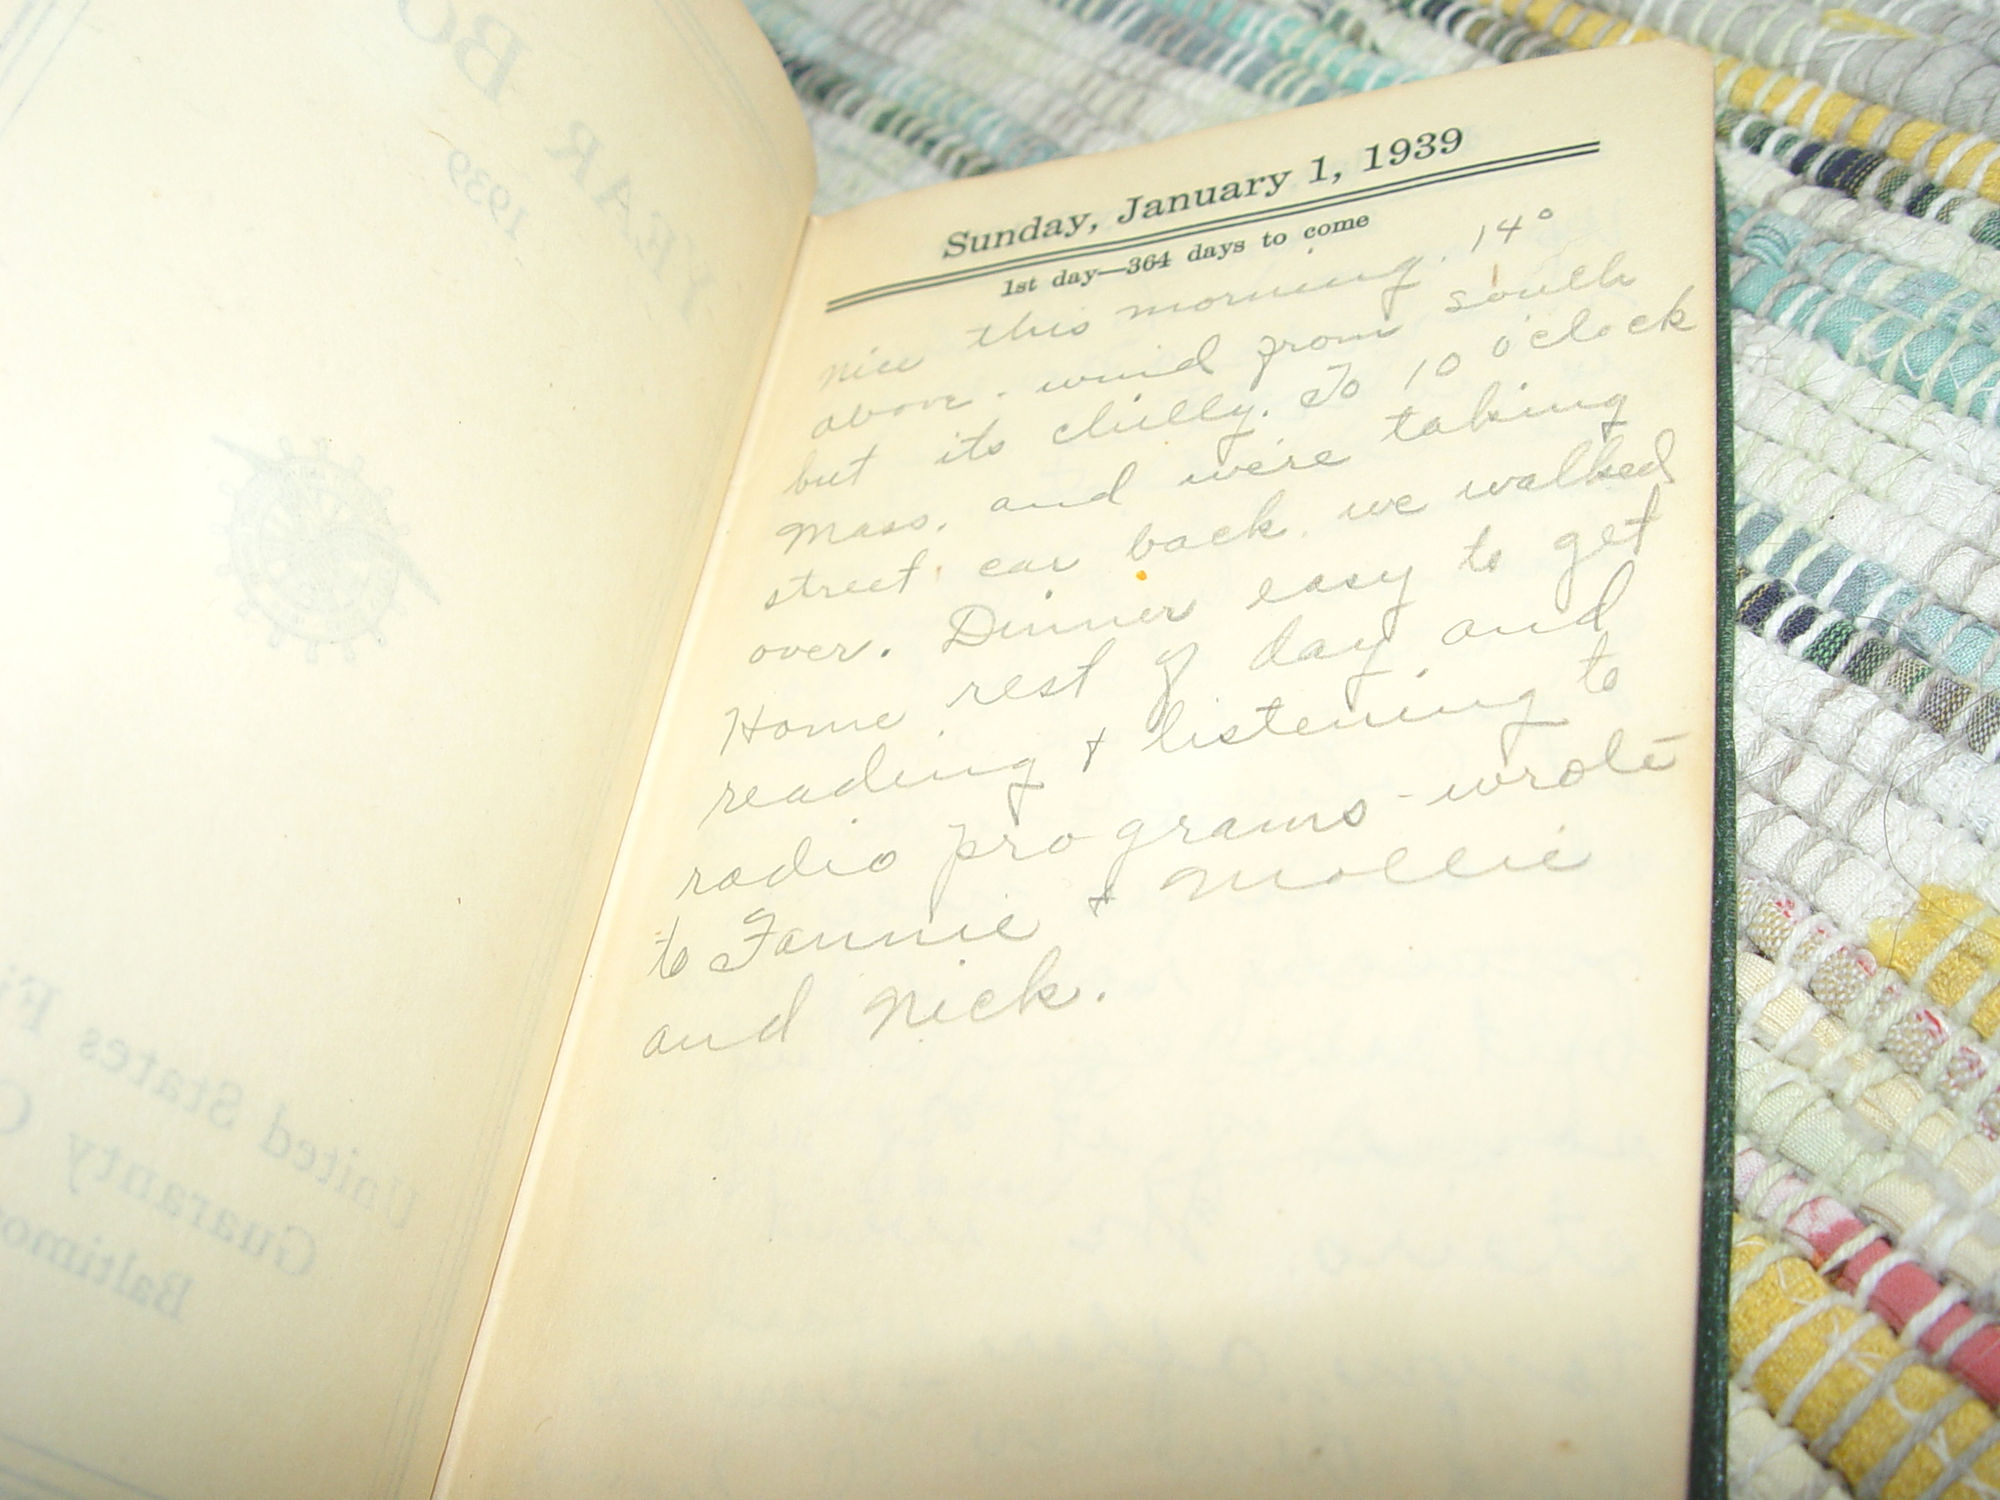 YEAR BO
1939
United States Fi
Guaranty C
Baltimo
Sunday, January 1, 1939
1st day—364 days to come
nice this morning. 14°
above. wind from south
but its chilly. To 10 o'clock
Mass. and were taking
street car back. we walked
over. Dinner easy to get
Home rest of day and
reading + listening to
radio programs - wrote
to Fannie + Mollie
and Nick.